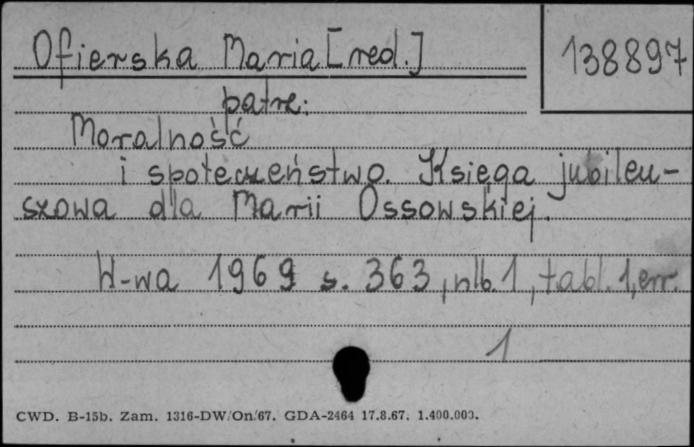 Ofierska Maria [red.]
138897
patrz:
Moralność
i społeczeństwo. Księga jubileu-
szowa dla Marii Ossowskiej.
W-wa 1969 s. 363, nlb. 1, tabl. 1, err.
1
CWD. B-15b. Zam. 1316-DW/On/67. GDA-2464 17.8.67. 1.400.000.